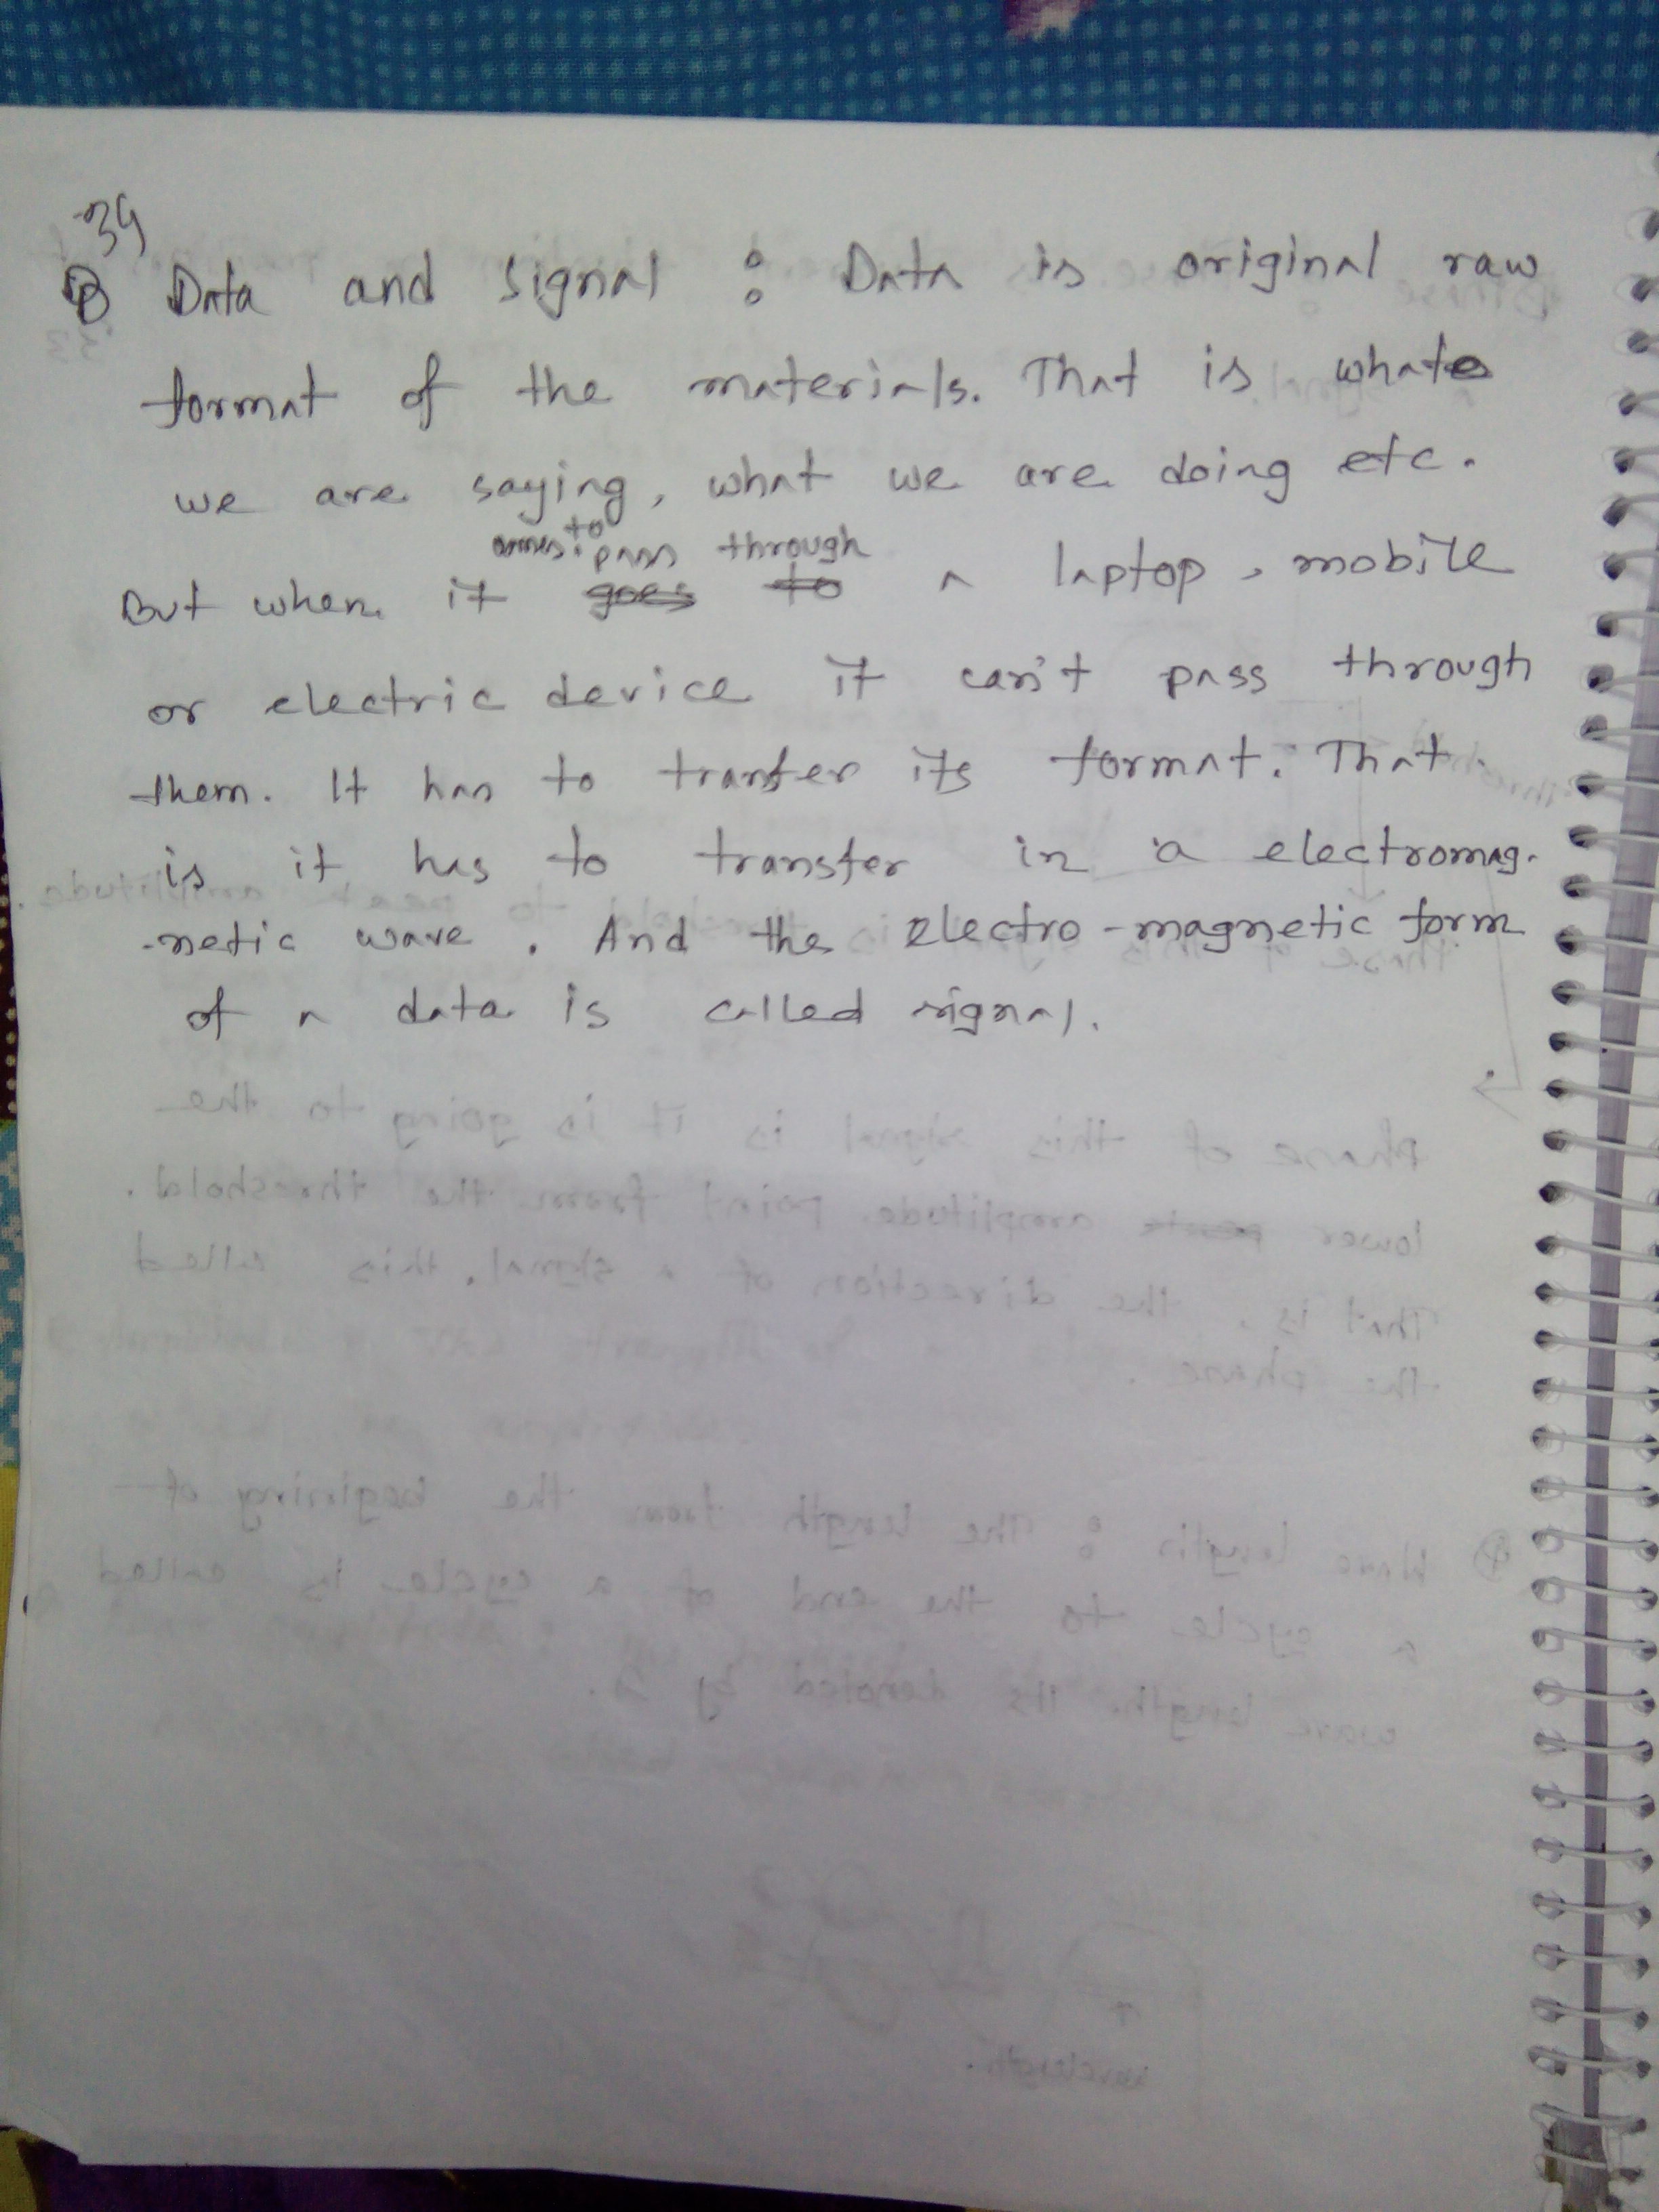 34
Data and signal : Data is original raw
format of the materials. That is what
we are saying, what we are doing etc.
to pass through
But when it goes to a laptop, mobile
or electric device it can't pass through
them. It has to tranfer its format. That
is it has to transfer in a electromag-
-netic wave. And the electro-magnetic form
of a data is called signal.